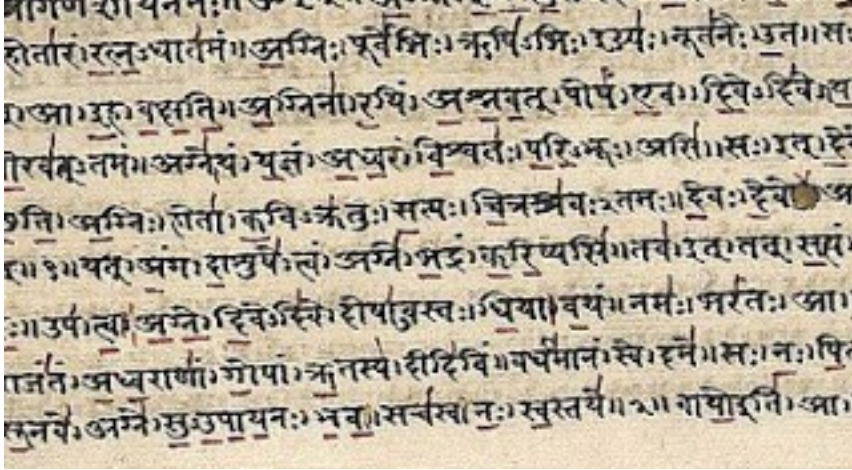 होतारं। रत्नऽधातमं॥ अग्निः। पूर्वेभिः। ऋषिऽभिः। ईड्यः। नूतनैः। उत॥ सः
आ। इह। वक्षति॥ अग्निना। रयिं। अश्नवत्। पोषं। एव। दिवेऽदिवे॥
वीरवत्ऽतमं॥ अग्ने। यं। यज्ञं। अध्वरं। विश्वतः। परिऽभूः। असि॥ सः। इत्। दे
ति। अग्निः। होता। कविऽक्रतुः। सत्यः। चित्रश्रवःऽतमः॥ देवः। देवे आ
॥१॥ यत्। अंग। दाशुषे। त्वं। अग्ने। भद्रं। करिष्यसि॥ तव। इत्। तत्। सत्यं
॥ उप। त्वा। अग्ने। दिवेऽदिवे। दोषाऽवस्तः। धिया। वयं॥ नमः। भरंतः। आ।
राजंतं। अध्वराणां। गोपां। ऋतस्य। दीदिविं॥ वर्धमानं। स्वे। दमे॥ सः। नः। पि
सूनवे। अग्ने। सुऽउपायनः। भव॥ सचस्व। नः। स्वस्तये॥२॥ वायो इति। आ।